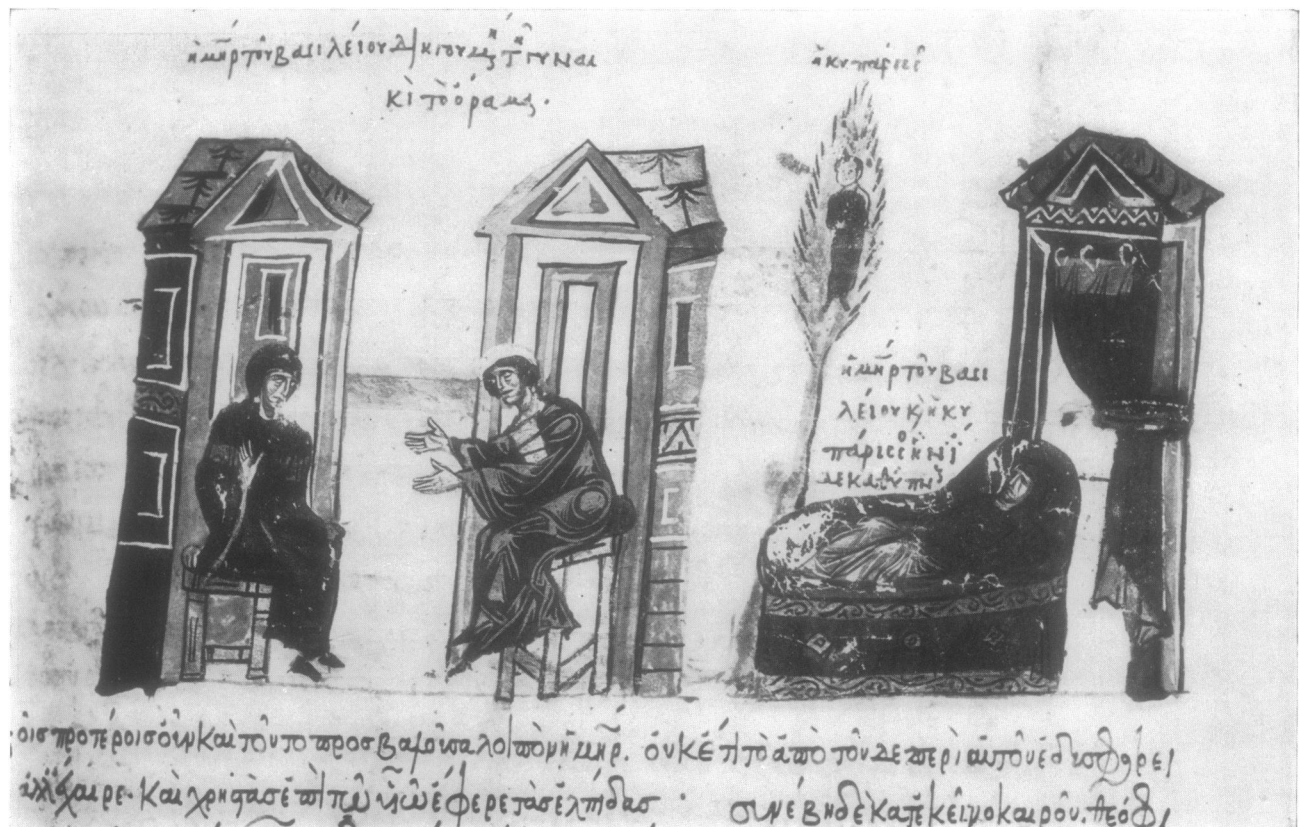 ἡ μηρ τοῦ βασιλείου δικιουμ τ γυναι
κὶ τὸ ὅραμα.
ἡ κυπάρισσ
ἡ μηρ τοῦ βασι
λείου κ ἡ κυ
πάρισσ ἣν ἴ
δε καθ ὕπν
οις προτέροις οὖν καὶ τοῦτο προσβαλοῦσα λοιπὸν ἡ μηρ. οὐκέτι τὸ ἀπὸ τοῦδε περὶ αὐτοῦ ἐδυσφόρει
ἀλλ ἔχαιρε. καὶ χρηστὰς ἐπ ἔφερε τὰς ἐλπίδας · συνέβη δὲ κατ ἐκεῖνο καιροῦ. Θεόφι